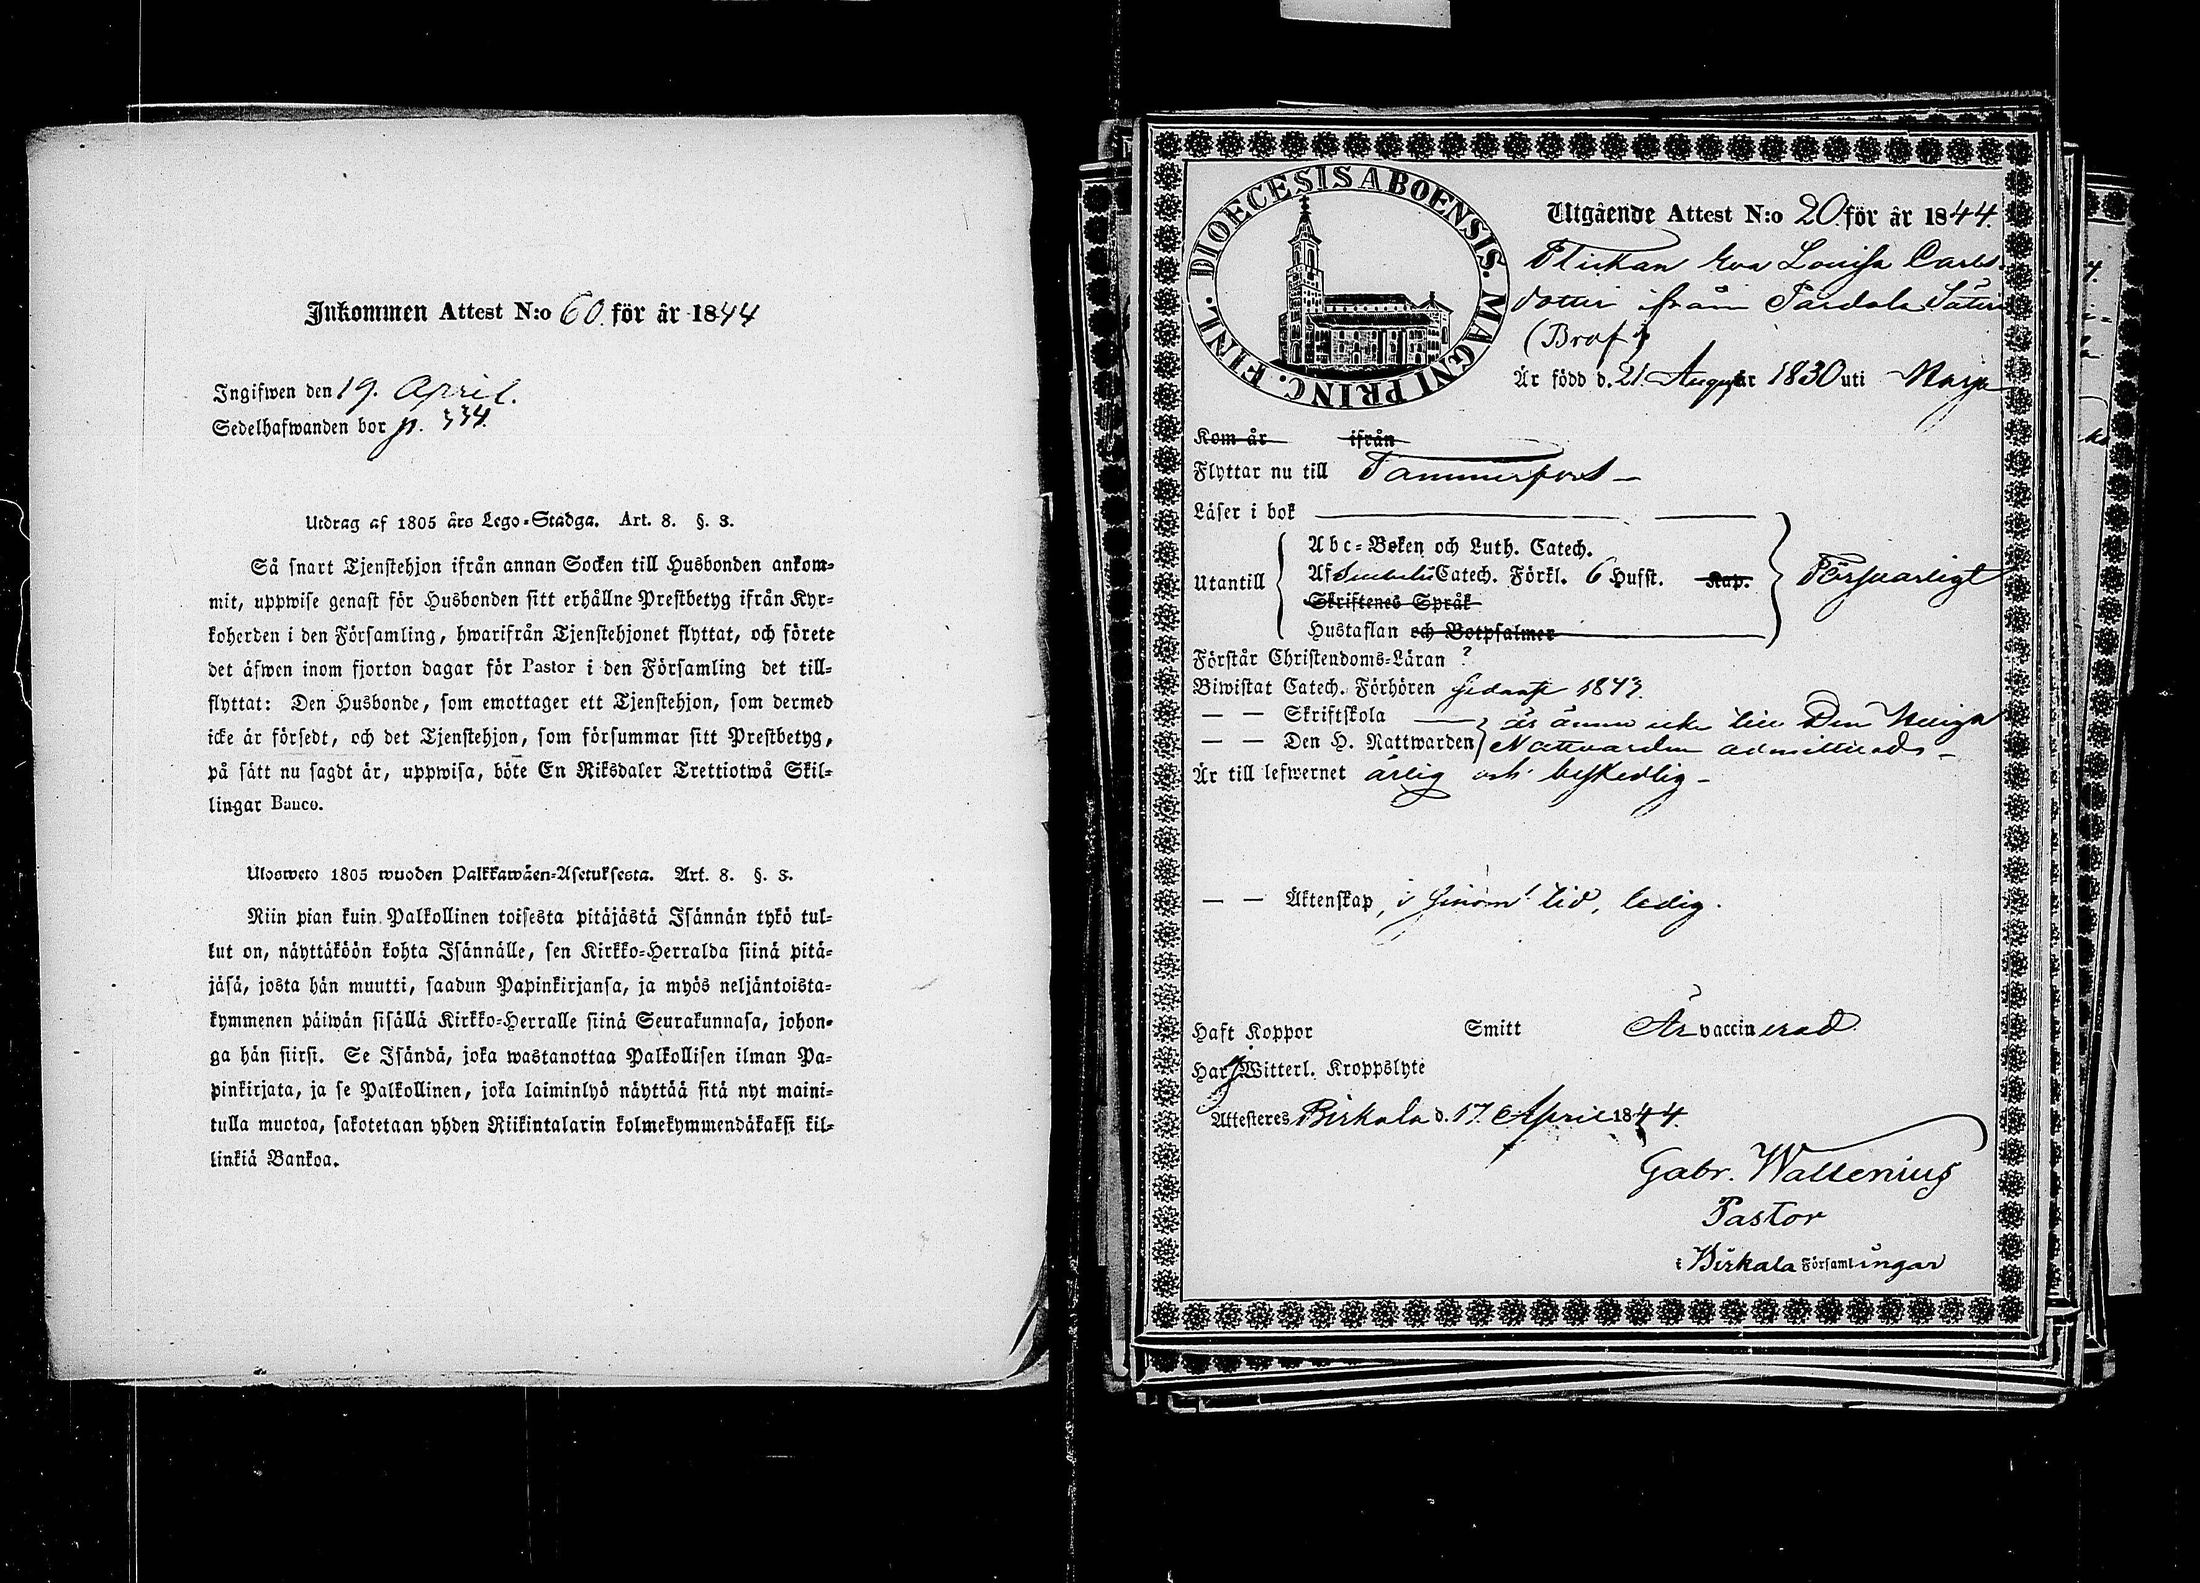 Inkommen Attest N:o 60. för år 1844
Ingifwen den 19. April.
Sedelhafwanden bor p. 334.
Utdrag af 1805 års Lego-Stadga. Art. 8. §. 3.
Så snart Tjenstehjon ifrån annan Socken till Husbonden ankom-
mit, uppwise genast för Husbonden sitt erhållne Prestbetyg ifrån Kyr-
koherden i den Församling, hwarifrån Tjenstehjonet flyttat, och förete
det äfwen inom fjorton dagar för Pastor i den Församling det till-
flyttat: Den Husbonde, som emottager ett Tjenstehjon, som dermed
icke är försedt, och det Tjenstehjon, som försummar sitt Prestbetyg,
på sätt nu sagdt är, uppwisa, böte En Riksdaler Trettiotwå Skil-
lingar Banco.
Ulosweto 1805 wuoden Palkkawäen-Asetuksesta. Art. 8. §. 3.
Niin pian kuin Palkollinen toisesta pitäjästä Isännän tykö tul-
lut on, näyttäköön kohta Isännälle, sen Kirkko-Herralda siinä pitä-
jäsä, josta hän muutti, saadun Papinkirjansa, ja myös neljäntoista-
kymmenen päiwän sisällä Kirkko-Herralle siinä Seurakunnasa, johon-
ga hän siirsi. Se Isändä, joka wastanottaa Palkollisen ilman Pa-
pinkirjata, ja se Palkollinen, joka laiminlyö näyttää sitä nyt maini-
tulla muotoa, sakotetaan yhden Riikintalarin kolmekymmendäkaksi kil-
linkiä Bankoa.
DIOECESIS ABOENSIS. MAGNI PRINC. FINL.
Utgående Attest N:o 20 för år 1844.
Flickan Eva Lovisa Carls-
dotter ifrån Pardala Säteri
(Brof)
Är född d. 21. August år 1830 uti Norje
Kom år ifrån
Flyttar nu till Tammerfors
Läser i bok
Utantill
Abc-Boken och Luth. Catech.
Af Catech. Förkl. 6 Hufst. Kap.
Försvarligt
Skriftenes Språk
Hustaflan och Botpsalmer
Förstår Christendoms-Läran ?
Biwistat Catech. Förhören sednast 1843.
— — Skriftskola
är ännu icke till Den Heliga
— — Den H. Nattwarden
Nattvarden admitterad
Är till lefwernet ärlig och beskedlig
— — Äktenskap, i sinom tid, ledig.
Haft Koppor Smitt Är vaccinerad
Har Witterl. Kroppslyte
Attesteres Birkala d. 17. April 1844.
Gabr. Wallenius
Pastor
i Birkala Församlingar